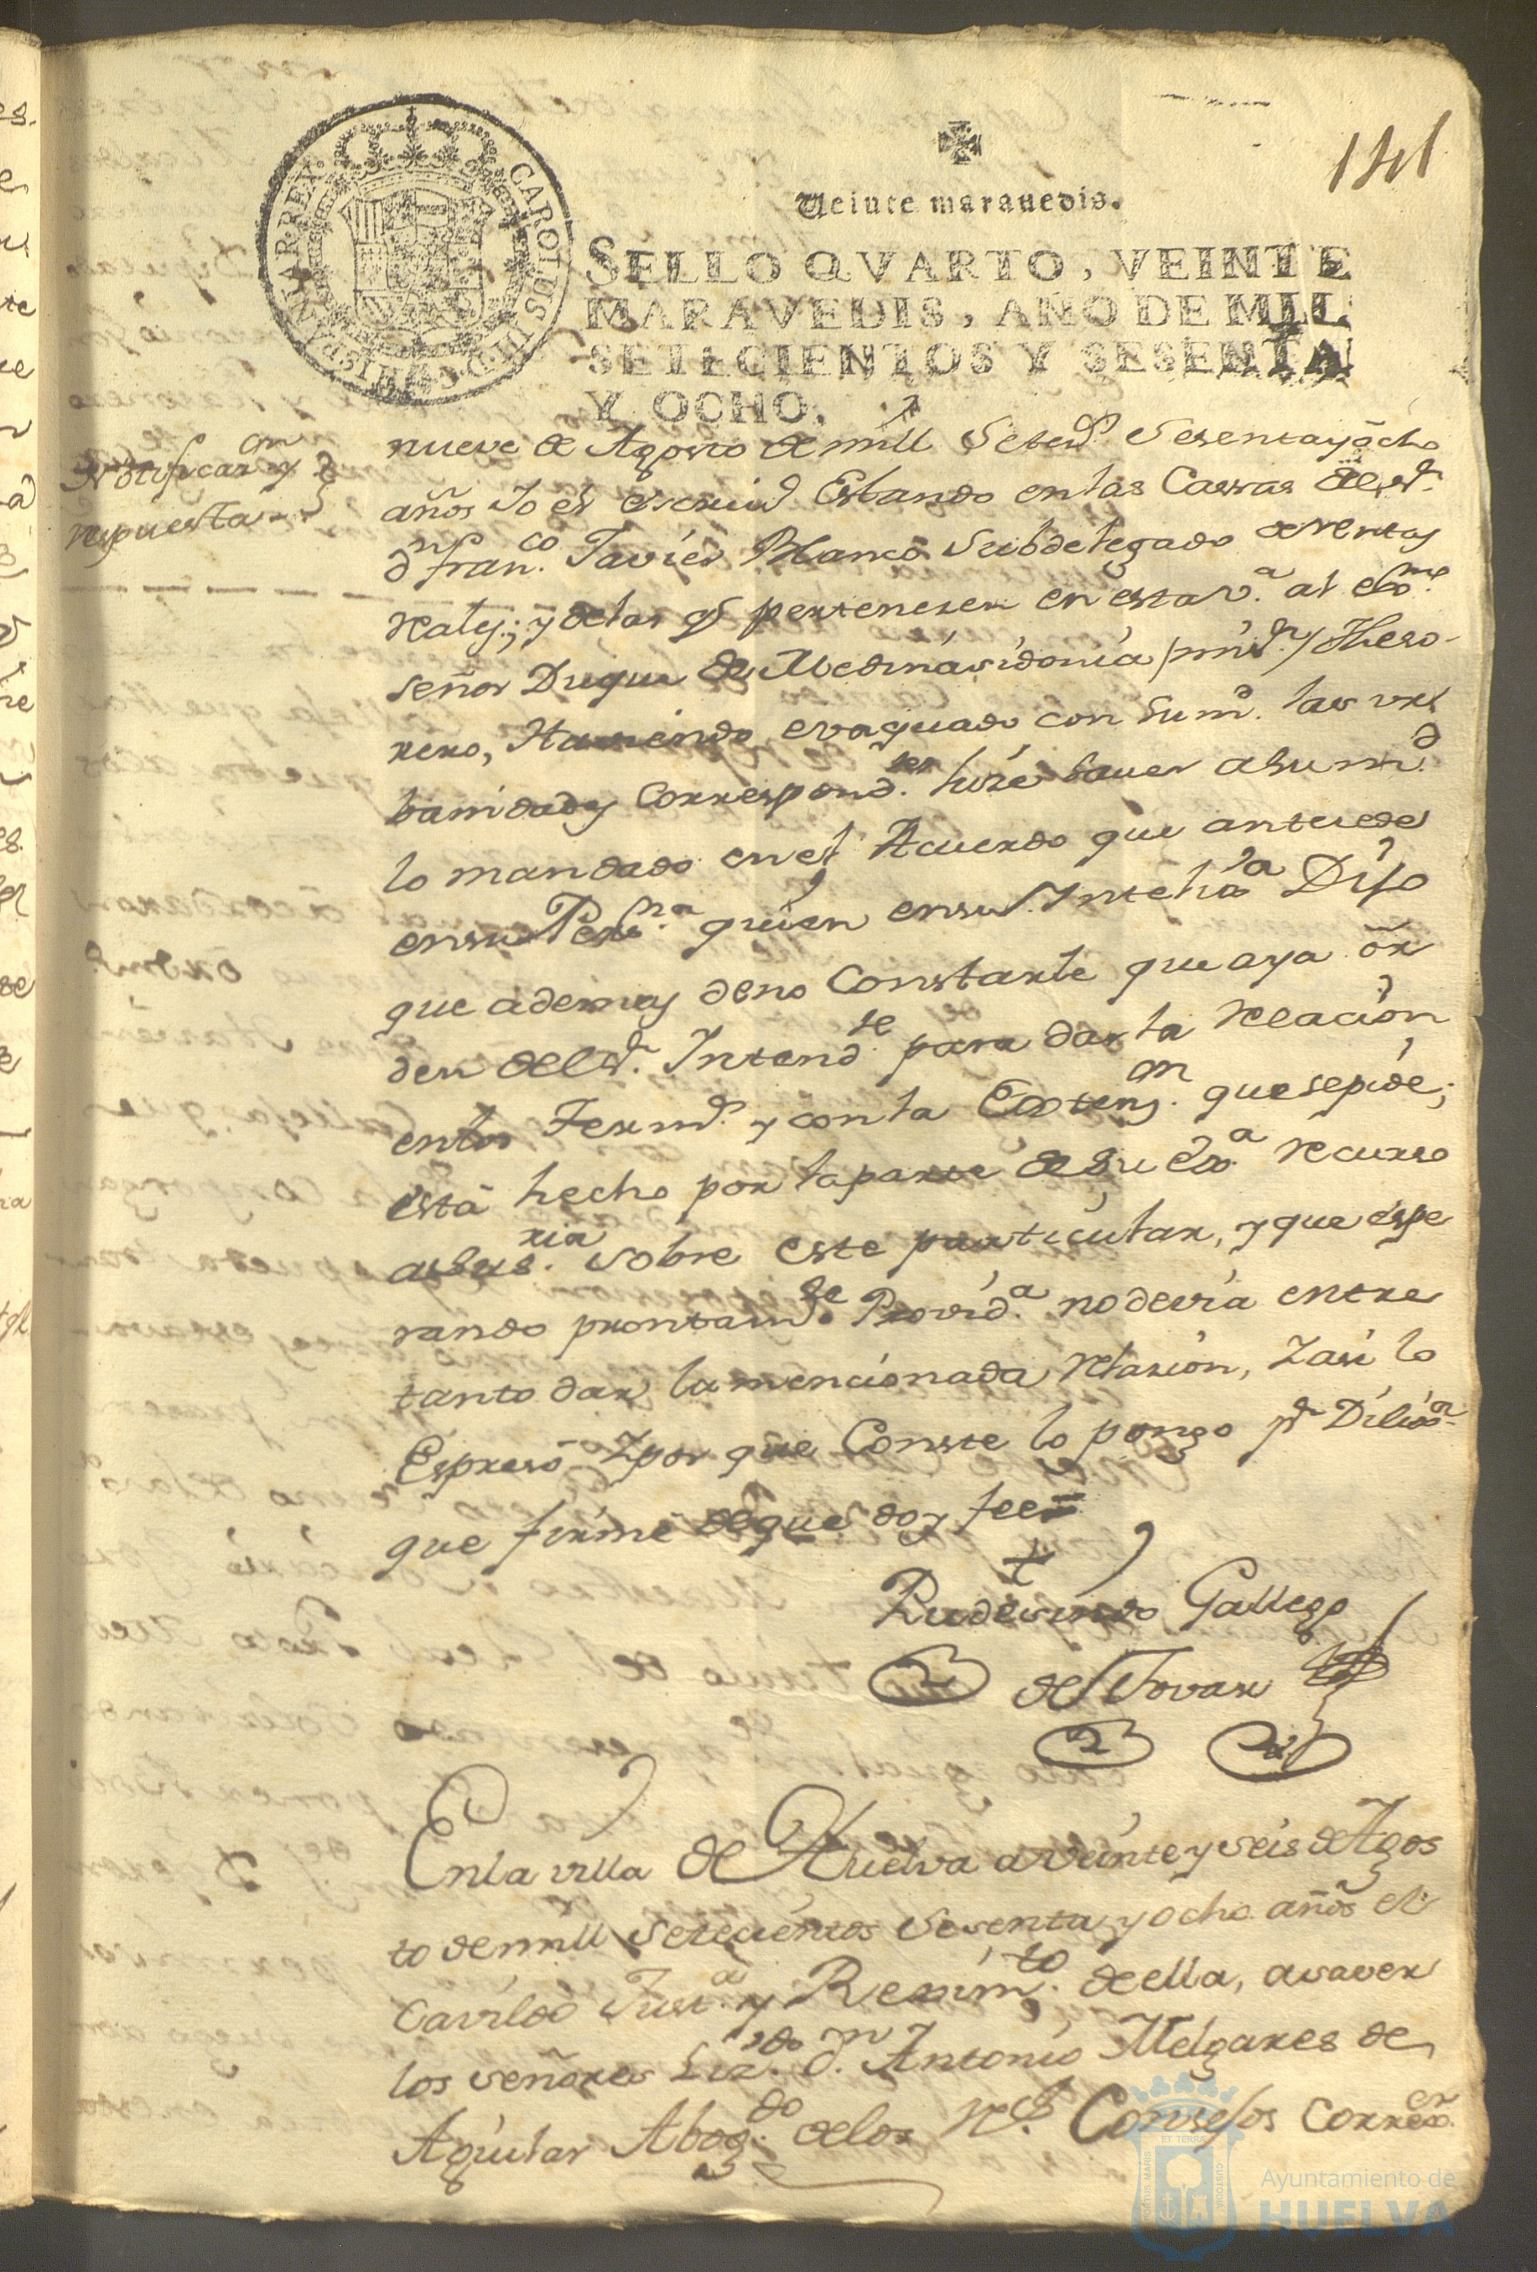 141
Veinte maravedis.
SELLO QVARTO, VEINTE
MARAVEDIS, AÑO DE MIL
SETECIENTOS Y SESENTA
Y OCHO.
CAROLUS III D G HISPANIAR REX
Notificaz.on y
respuesta
nueve de Agosto de mill Seteс.s Sesenta y ocho
años Yo el escriv.o Estando en las Cassas de el S.r
D.n Fran.co Javier Blanco Subdelegado de rentas
reales; y de las q.e pertenesen en esta v.a al ex.mo
señor Duque de Medinasidonia, su Theso-
rero, Haviendo evaquado con su m.d las ur
banidades Correspond.tes hise saver a su m.d
lo mandado en el Acuerdo que antecede
en su Pers.na quien en su Intelig.a Dijo
que ademas de no Constarle que aya or
den de el S.r Intend.te para dar la relacion
en los Termi.s y con la Extens.on que se pide;
está hecho por la parte de su Ex.a recurso
a sus.ria sobre este particular, y que espe
rando prontam.te Provid.a no devia entre
tanto dar la mencionada relasion, Y asi lo
Espresó Y por que Conste lo pongo p.r Dilix.a
que firmé de que doy fee=
Rudesindo Gallego
de Tovar
En la villa de Huelva a veinte y seis de Agos
to de mill setecientos sesenta y ocho años el
Cavildo Just.a y Rexim.to de ella, a saver
los señores Liz.do D.n Antonio Melgares de
Aguilar Abog.do de los R.s Consejos Correx.or
Ayuntamiento de
HUELVA